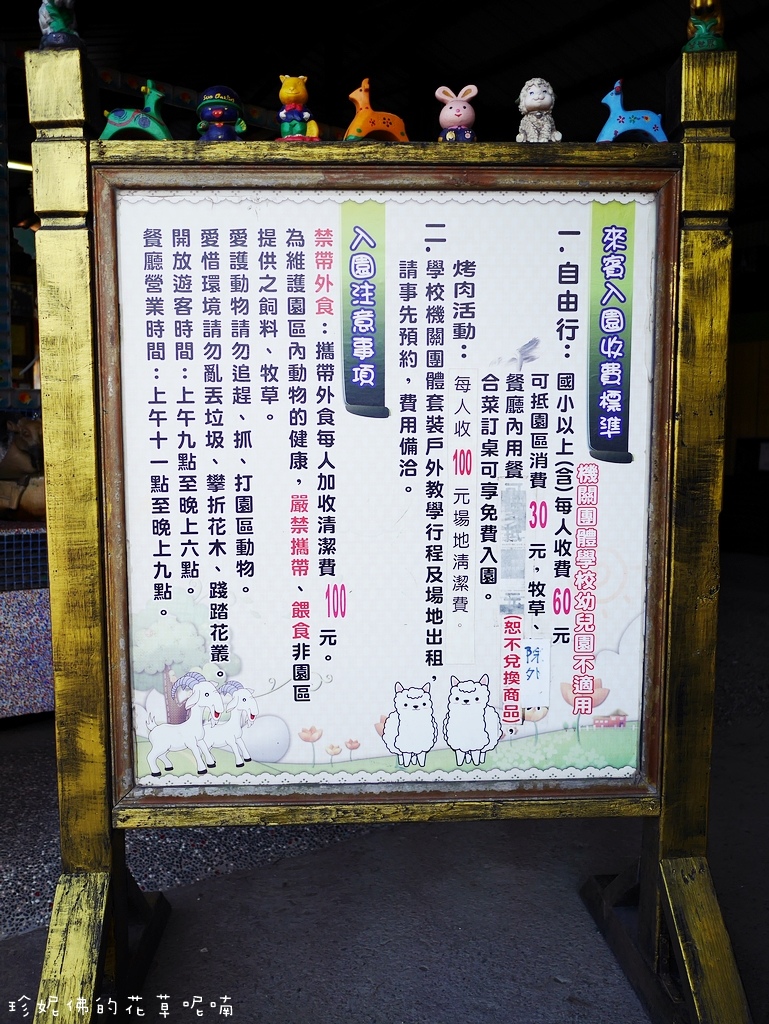 來賓入園收費標準
機關團體學校幼兒園不適用
一.自由行：國小以上(含)每人收費 60 元
可抵園區消費 30 元，牧草、除外
餐廳內用餐(恕不兌換商品)，
合菜訂桌可享免費入園。
烤肉活動：每人收 100 元場地清潔費。
二.學校機關團體套裝戶外教學行程及場地出租，
請事先預約，費用備洽。
入園注意事項
禁帶外食：攜帶外食每人加收清潔費 100 元。
為維護園區內動物的健康，嚴禁攜帶、餵食非園區
提供之飼料、牧草。
愛護動物請勿追趕、抓、打園區動物。
愛惜環境請勿亂丟垃圾、攀折花木、踐踏花叢。
開放遊客時間：上午九點至晚上六點。
餐廳營業時間：上午十一點至晚上九點。
珍妮佛的花草呢喃